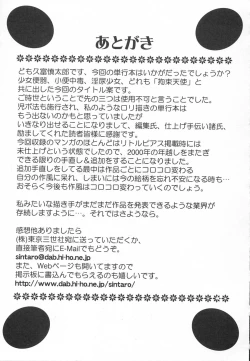 あとがき
ども久富慎太郎です、今回の単行本はいかがだったでしょうか？
少女便器、小便中毒、淫尿少女、どれも「拘束天使」と
共に出した今回のタイトル案です。
ご時世ということで先の三つは使用不可と言うことでした。
児ポ法も施行され、私のようなロリ描きの単行本は
もう出ないのかもと思っていましたが
いきなり出すことになりまして、編集氏、仕上げ手伝い諸氏、
励ましてくれた読者皆様に感謝です。
今回収録のマンガのほとんどはリトルピアス掲載時には
未仕上げという状態でしたので、2000年の年越しをまたぎ
かなりの手直し＆追加をすることになりました。
追加手直しをしてる最中は作品ごとにコロコロ変わる
自分の作風に呆れ、しまいには今らの絵柄を忘れ不安になる時も…
おそらく今後も作風はコロコロ変わっていくのでしょう。
私みたいな描き手がまだまだ作品を発表できるような業界が
存続しますように…。それではさようなら。
感想他ありましたら
(株)東京三世社宛に送っていただくか、
直接筆者宛にE-Mailでもどうぞ。
sintaro@dab.hi-ho.ne.jp
また、Webページも開けてますので
掲示板に書込んでもらえるのも嬉しいです。
http://www.dab.hi-ho.ne.jp/sintaro/